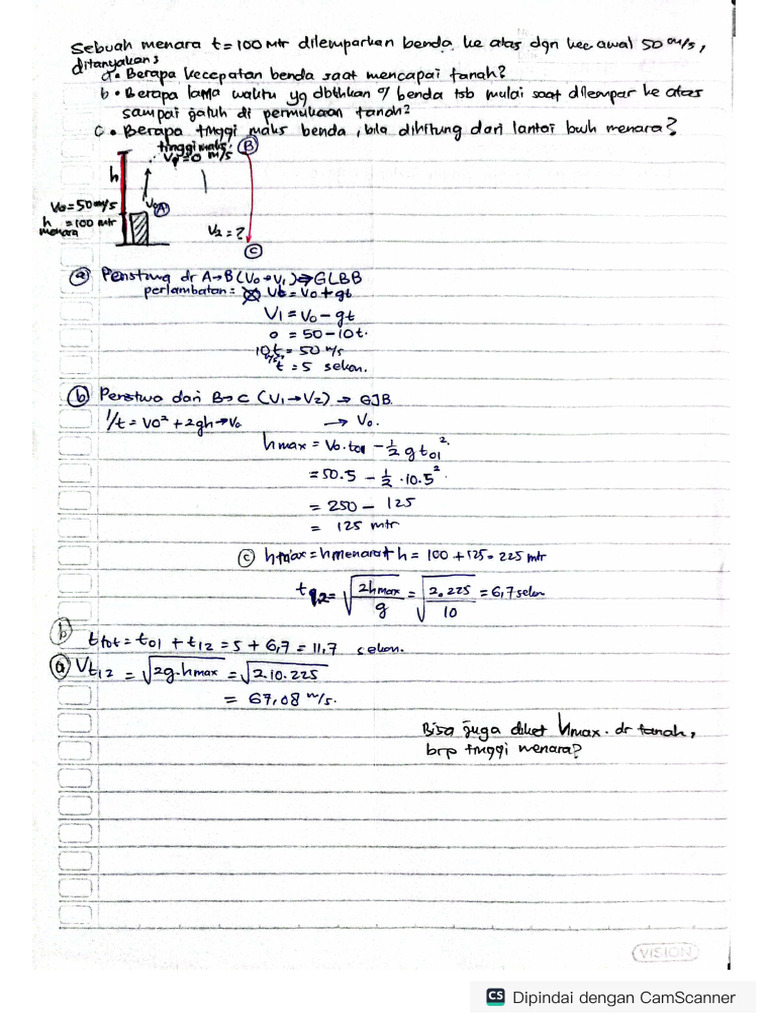 Sebuah menara t = 100 Mtr dilemparkan benda ke atas dgn kec awal 50 m/s,
ditanyakan :
a. Berapa kecepatan benda saat mencapai tanah?
b. Berapa lama waktu yg dbthkan o/ benda tsb mulai saat dilempar ke atas
sampai jatuh di permukaan tanah?
c. Berapa tinggi maks benda, bila dihitung dari lantai bwh menara?
tinggi maks : B
V1 = 0 m/s
h
V0 = 50 m/s V0 A
h menara = 100 mtr
V2 = ?
C
a Peristiwa dr A → B (V0 → V1) ⇒ GLBB
perlambatan = Vt = V0 + gt
V1 = V0 - gt
0 = 50 - 10t.
10t = 50 m/s
t = 5 sekon.
b Perstwa dari B → C (V1 → V2) → GJB
Vt = V0² + 2gh → V0 → V0.
hmax = V0.t01 - 1/2 g t01².
= 50.5 - 1/2 .10.5².
= 250 - 125
= 125 mtr
c hmax = hmenara + h = 100 + 125 = 225 mtr
t12 = √2hmax/g = √2.225/10 = 6,7 sekon
b ttot = t01 + t12 = 5 + 6,7 = 11,7 sekon.
a Vt12 = √2g.hmax = √2.10.225
= 67,08 m/s.
Bisa juga diket hmax. dr tanah,
brp tinggi menara?
VISION
CS Dipindai dengan CamScanner